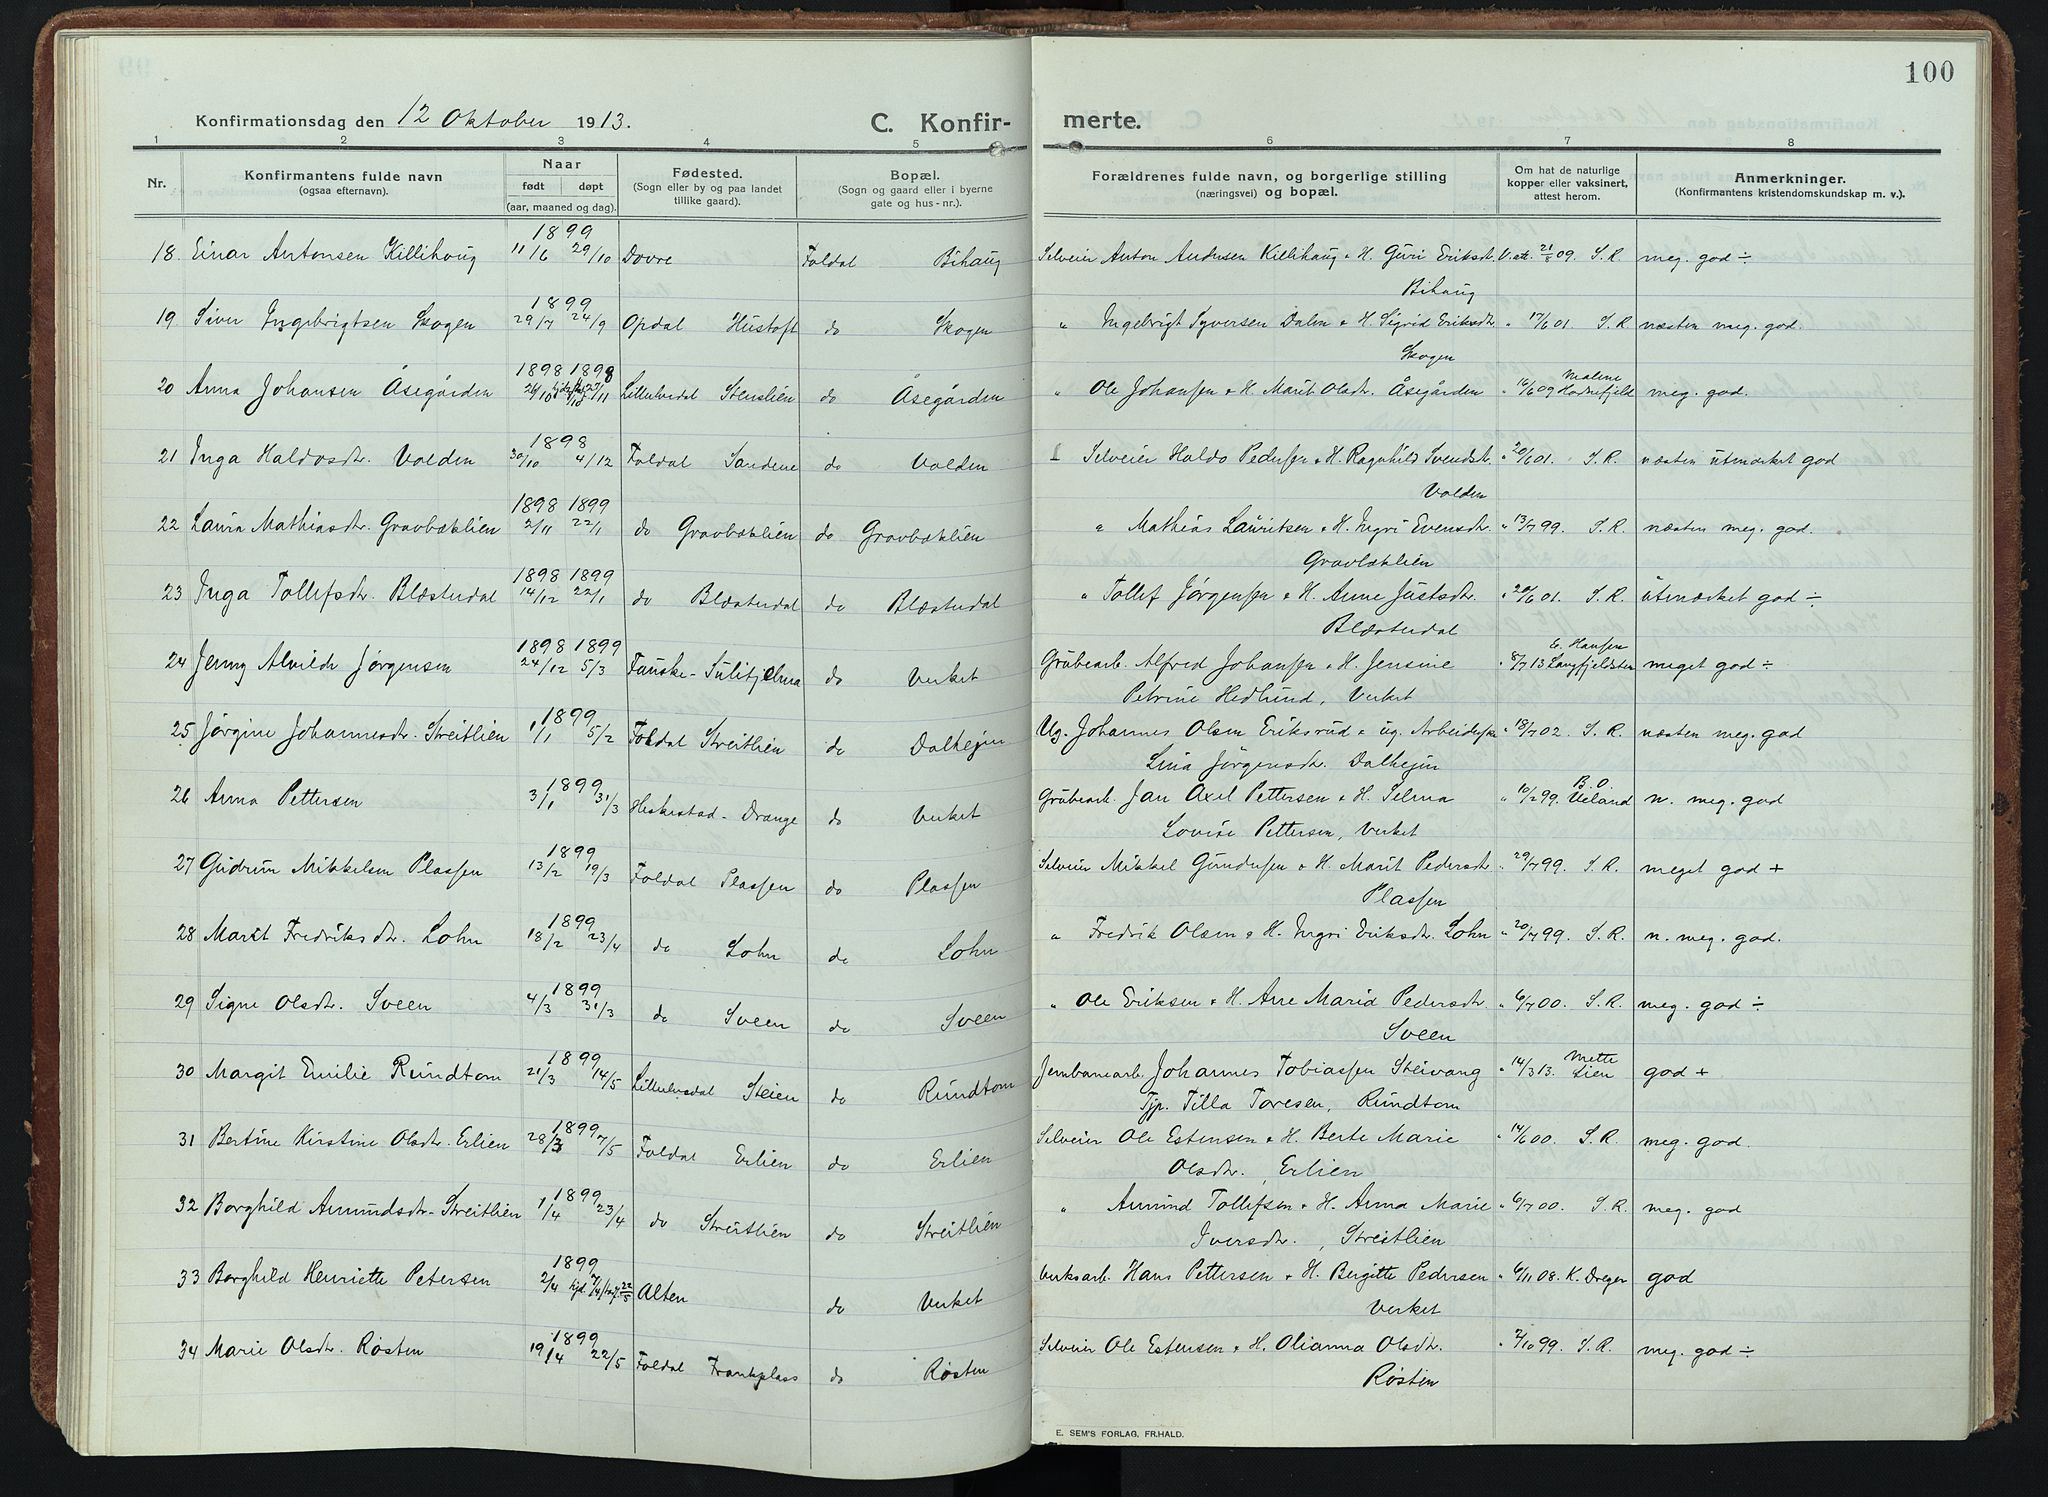 100
Konfirmationsdag den 12 Oktober 1913.
C. Konfirmerte.
1 2 3 4 5 6 7 8
Nr.
Konfirmantens fulde navn
(ogsaa efternavn).
Naar
født døpt
(aar, maaned og dag).
Fødested.
(Sogn eller by og paa landet
tillike gaard).
Bopæl.
(Sogn og gaard eller i byerne
gate og hus-nr.).
Forældrenes fulde navn, og borgerlige stilling
(næringsvei) og bopæl.
Om hat de naturlige
kopper eller vaksinert,
attest herom.
Anmerkninger.
(Konfirmantens kristendomskundskap m. v.).
1899
18. Einar Antonsen Killihaug 11/6 29/10 Dovre Foldal Bihaug Selveier Anton Andersen Killihaug & H. Guri Eriksdtr. V. att. 21/8 09. S. R. meg. god ÷
Bihaug
1899
19 Siver Ingebrigtsen Skogen 29/7 24/9 Opdal Hustoft do Skogen " Ingebrigt Syversen Dalen & H. Sigrid Eriksdtr. " 17/6 01. S. R. næsten meg. god.
Skogen
1898 1898
20 Anna Johansen Åsegården 26/10 27/11 Lilleelvedal Stenslien do Åsegården " Ole Johansen & H. Marit Olsdtr. Åsegården " 16/6 09 Malene Hodnefjeld meg. god.
1898
21 Inga Haldosdtr. Volden 30/10 4/12 Foldal Sandene do Volden Selveier Haldo Pedersen & H. Ragnhild Svendsdtr. " 20/6 01. S. R. næsten utmerket god
Volden
1898 1899
22 Laura Mathiasdtr. Gravbæklien 2/11 22/1 do Gravbæklien do Gravbæklien " Mathias Lauritsen & H. Ingri Evensdtr. " 13/7 99. S. R. næsten meg. god.
Gravbæklien
1898 1899
23 Inga Tollefsdtr. Blæsterdal 14/12 22/1 do Blæsterdal do Blæsterdal " Tollef Jørgensen & H. Anne Justsdtr. " 20/6 01. S. R. utmerket god ÷
Blæsterdal
1898 1899
24 Jenny Alvilde Jørgensen 24/12 5/3 Fauske - Sulitjelma do Verket Grubearb. Alfred Johansen & H. Jensine " 8/7 13 E. Hansen Langfjeldsten meget god ÷
Petrine Hedlund, Verket
1899
25 Jørgine Johannesdtr. Streitlien 1/1 5/2 Foldal Streitlien do Dalhejm Ug. Johannes Olsen Eriksrud & ug. Arbeiderske " 18/7 02. S. R. næsten meg. god
Lina Jørgensdtr. Dalhejm
1899
26 Anna Pettersen 3/1 31/3 Heskestad - Drange do Verket Grubearb. Jan Axel Pettersen & H. Selma " 10/2 99. B. O. Ueland n. meg. god
Lovise Pettersen, Verket
1899
27 Gudrun Mikkelsen Plassen 13/2 19/3 Foldal Plassen do Plassen Selveier Mikkel Gundersen & H. Marit Pedersdtr. " 29/7 99. S. R. meget god +
Plassen
1899
28 Marit Fredriksdtr. Lohn 18/2 23/4 do Lohn do Lohn " Fredrik Olsen & H. Ingri Eriksdtr. Lohn " 20/7 99. S. R. n. meg. god.
1899
29 Signe Olsdtr. Sveen 4/3 31/3 do Sveen do Sveen " Ole Eriksen & H. Ane Maria Pedersdtr. " 6/7 00. S. R. meg. god ÷
Sveen
1899
30 Margit Emilie Rundtom 21/3 14/5 Lilleelvedal Steien do Rundtom Jernbanearb. Johannes Tobiassen Steivang " 14/3 13. Mette Lien god +
Tjp. Tilla Toresen, Rundtom
1899
31 Bertine Kirstine Olsdtr. Erlien 28/3 7/5 Foldal Erlien do Erlien Selveier Ole Estensen & H. Berte Marie " 14/6 00. S. R. meg. god.
Olsdtr., Erlien
1899
32 Borghild Amundsdtr. Streitlien 1/4 23/4 do Streitlien do Streitlien " Amund Tollefsen & H. Anna Marie " 6/7 00. S. R. meg. god
Iversdtr., Streitlien
1899
33 Borghild Henriette Petersen 2/4 hjd. 7/4 22/5 Alten do Verket Verksarb. Hans Pettersen & H. Bergitte Pedersen " 6/11 08. K. Dreyer god
Verket
1899
34 Marie Olsdtr. Røsten 19/4 22/5 Foldal Frankplass do Røsten Selveier Ole Estensen & H. Olianna Olsdtr. " 2/10 99. S. R. meg. god ÷
Røsten
E. SEM'S FORLAG, FR.HALD.